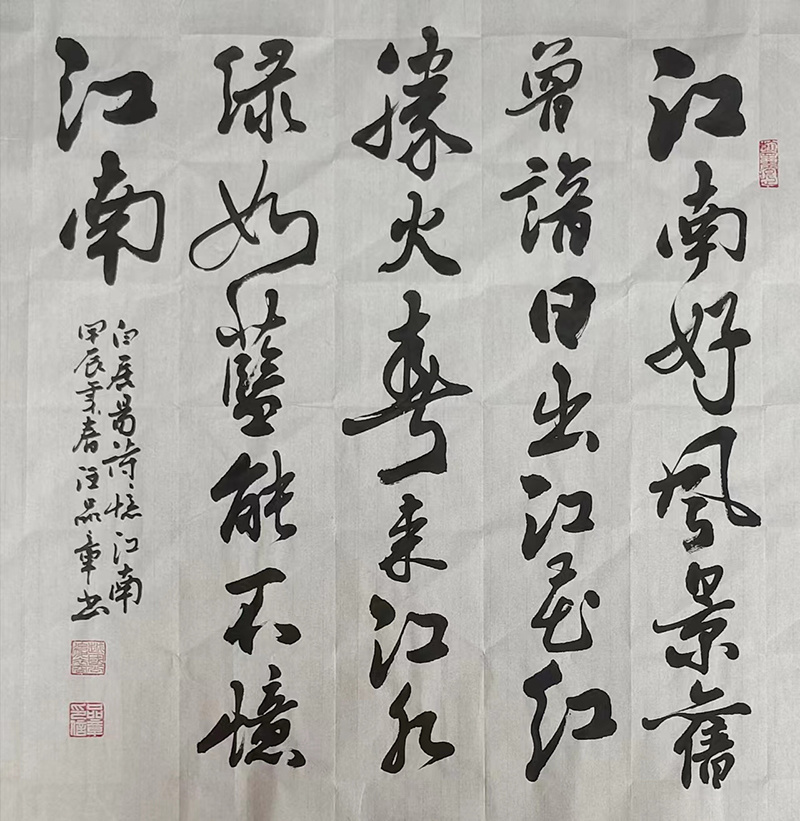 江南好风景舊
曾諳日出江花红
勝火春来江水
绿如藍能不憶
江南
白居易詩憶江南
甲辰季春汪品章书